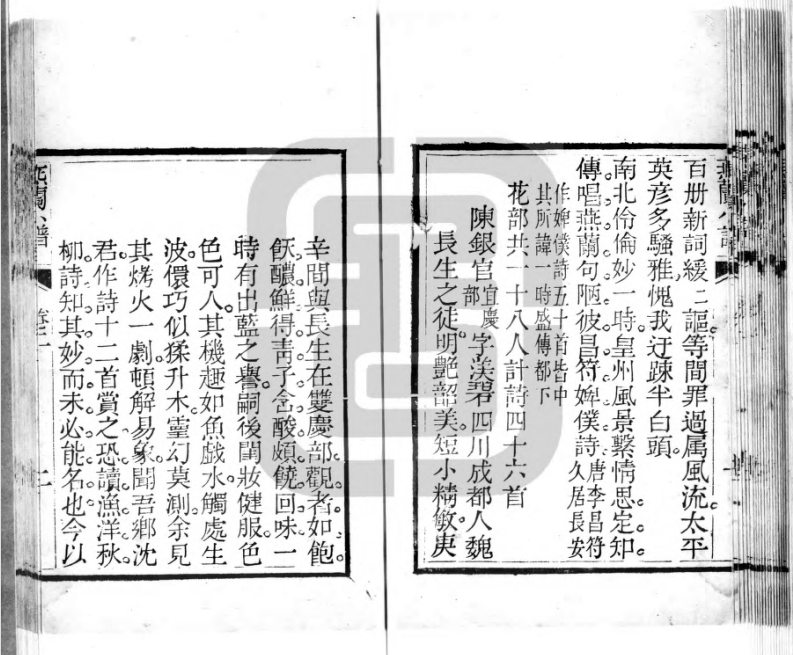 燕蘭小譜
百册新詞緩二謳等間罪過屬風流太平
英彦多騷雅愧我迂疎半白頭
南北伶倫妙一時皇州風景繫情思定知。
傳唱燕蘭句陋彼昌符婢僕詩。唐李昌符久居長安
作婢僕詩五十首皆中其所諱一時盛傳都下
花部共一十八人計詩四十六首
陳銀官宜慶部字渼碧四川成都人魏
長生之徒明艷韶美短小精敏庚
辛間與長生在雙慶部觀者如飽
飫醲鮮得靑子含酸頗饒回味一
時有出藍之譽嗣後閨妝健服色
色可人其機趣如魚戲水觸處生
波儇巧似猱升木靈幻莫測余見
其烤火一劇頓解易象聞吾鄉沈
君作詩十二首賞之恐讀漁洋秋
柳詩知其妙而未必能名也今以
燕蘭小譜
卷二
二